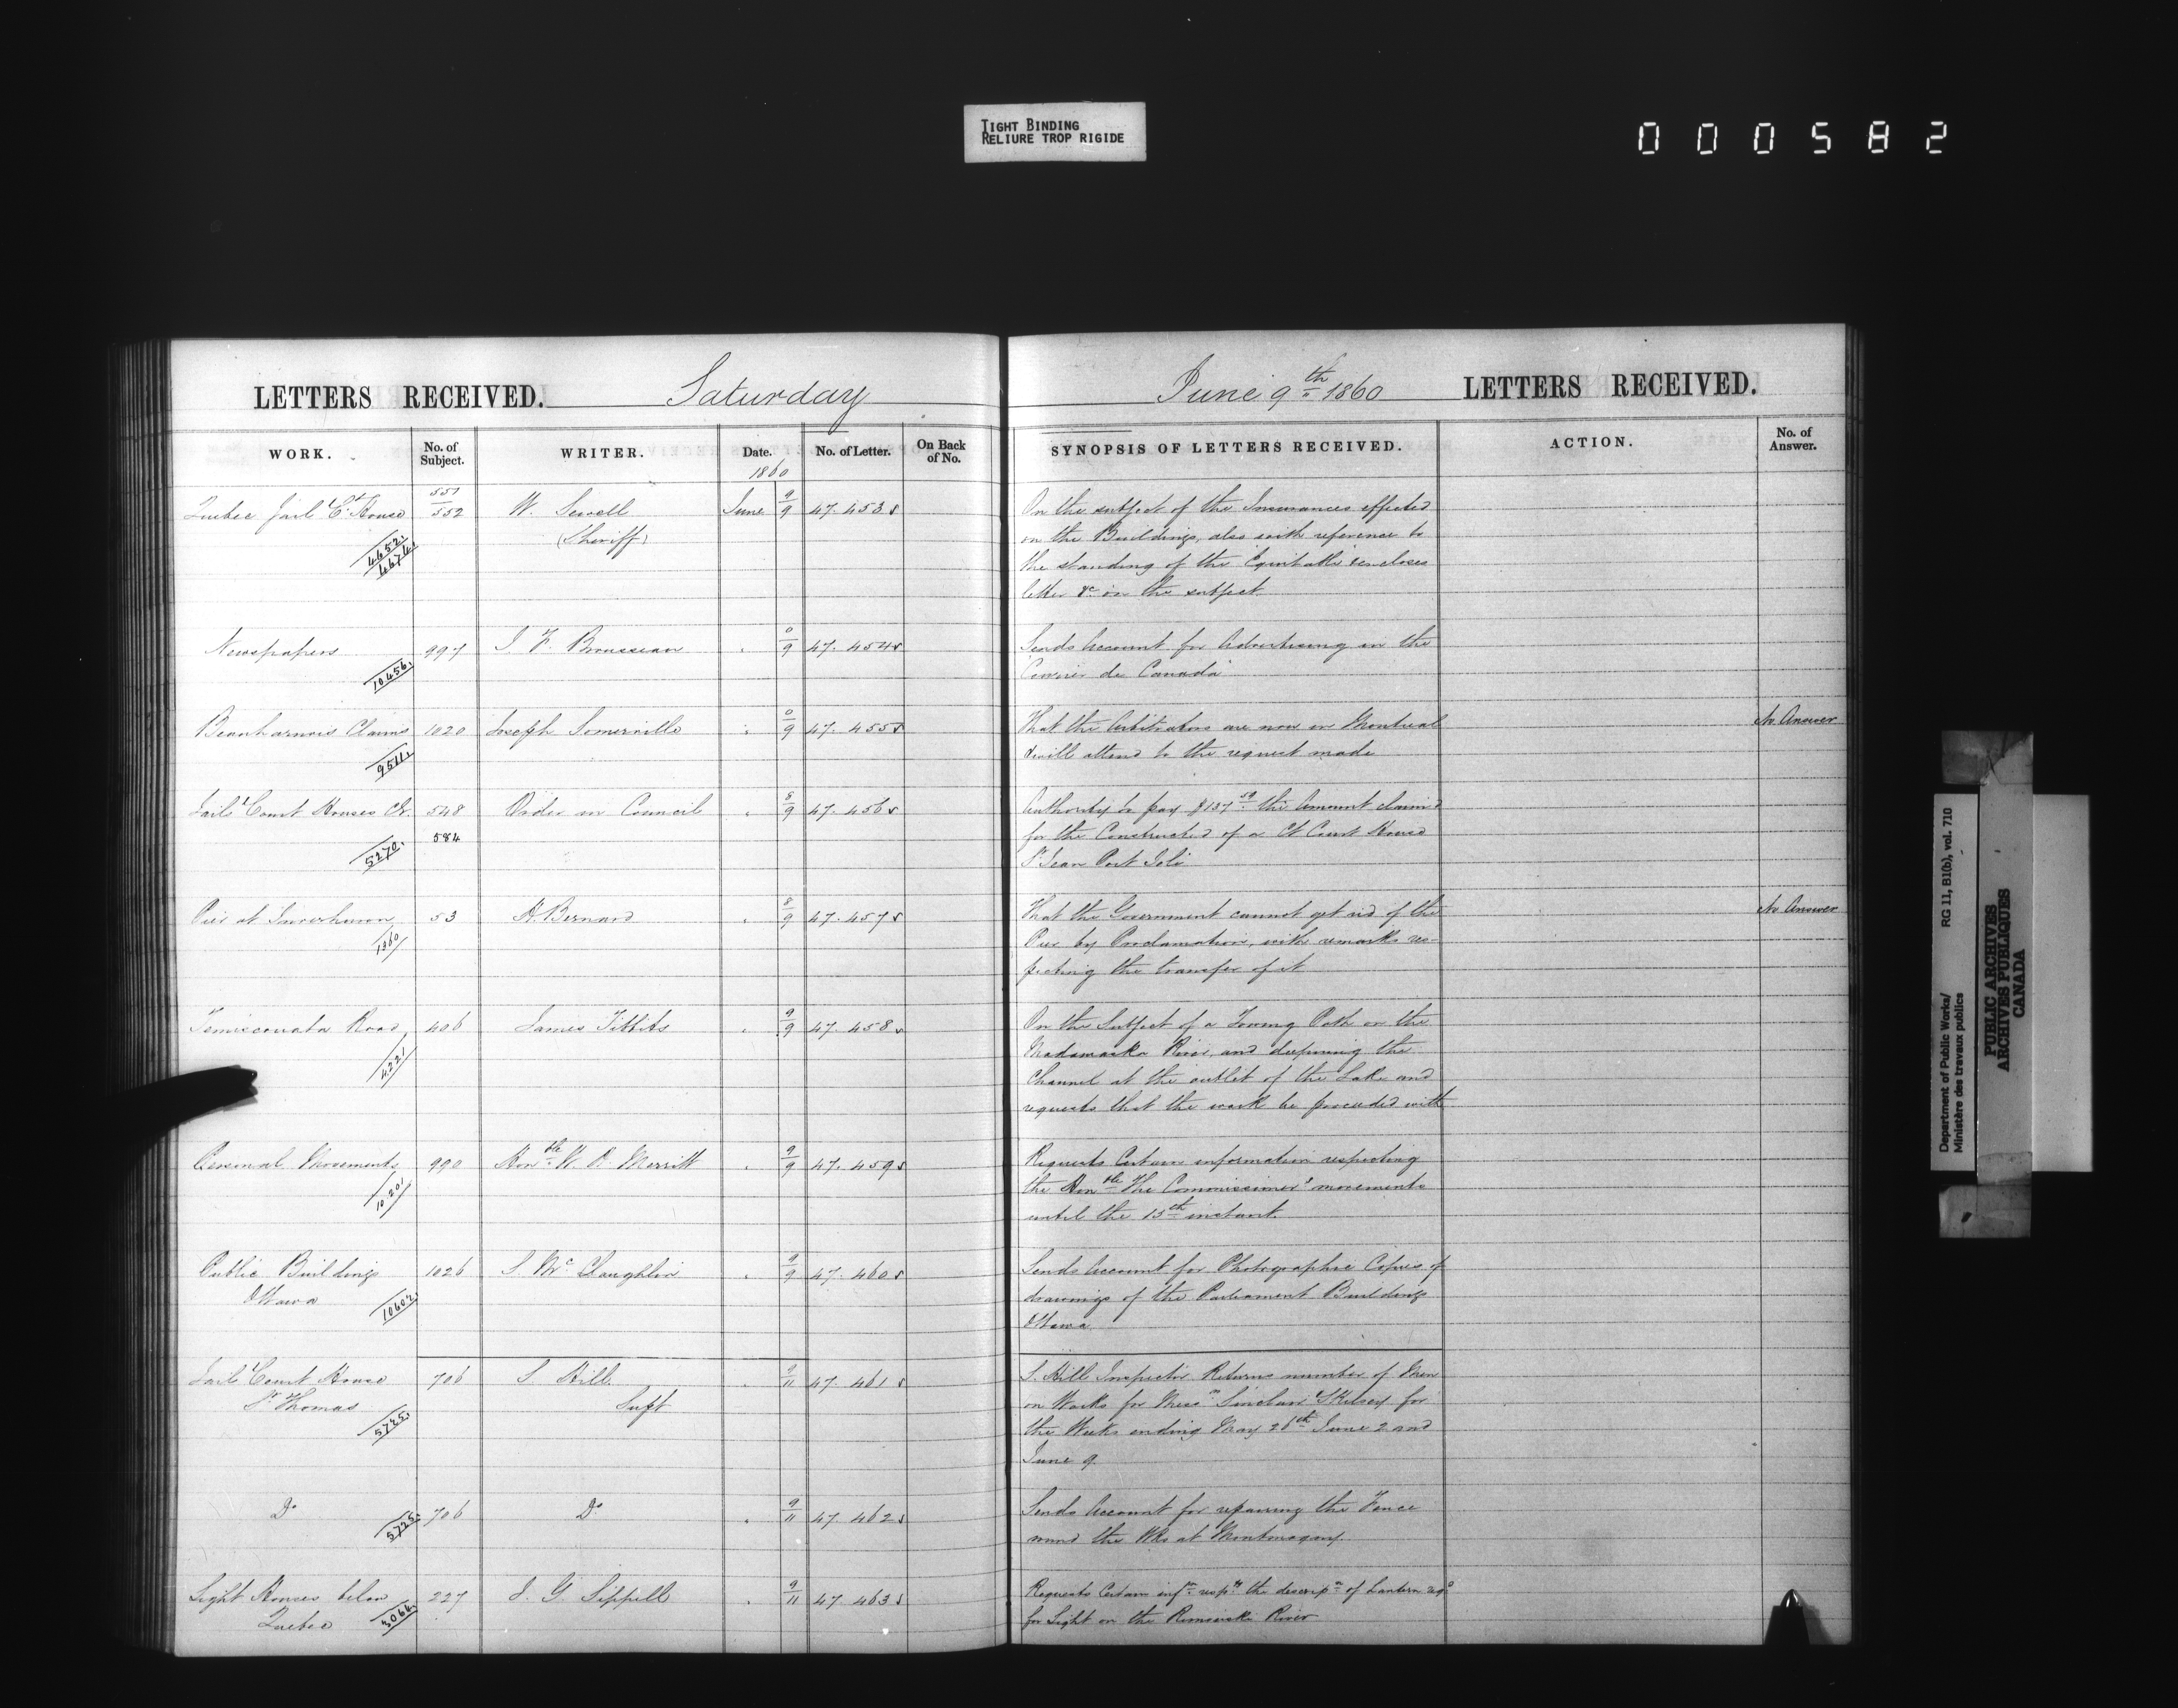 TIGHT BINDING
RELIURE TROP RIGIDE
000582
LETTERS RECEIVED. Saturday
WORK. No. of Subject. WRITER. Date. No. of Letter. On Back of No.
1860
Quebec Jail & Ct. House 551/552 W. Sewell June 9/9 47.453
(Sheriff)
4652.
4674.
Newspapers 997 J. T. Brousseau " 0/9 47.454
10456.
Beauharnois Claims 1020 Joseph Somerville " 0/9 47.455
9511.
Jails & Court Houses &c. 548 Order in Council " 8/9 47.456
584
5270.
Pier at Inverhuron 53 H. Bernard " 8/9 47.457
1360
Temiscouata Road 406 James Tibbits " 9/9 47.458
4221
Personal Movements 990 Honble. W. H. Merritt " 9/9 47.459
10.201
Public Buildings 1026 S. McLaughlin " 9/9 47.460
Ottawa
10602
Jail & Court House 706 S. Hill " 9/11 47.461
St. Thomas Supt
5725.
Do 706 Do " 9/11 47.462
5725.
Light Houses below 227 J. G. Sippell " 9/11 47.463
Quebec
3066.
June 9th 1860 LETTERS RECEIVED.
SYNOPSIS OF LETTERS RECEIVED. ACTION. No. of Answer.
On the subject of the Insurances effected
on the Buildings, also with reference to
the standing of the "Equitable" encloses
letter &c on the subject
Sends Account for Advertising in the
"Courrier de Canada"
That the Arbitrators are now in Montreal No Answer
& will attend to the request made
Authority to pay $137 50 the Amount claimed
for the Constructed of a Ct Court House
St Jean Port Joli
That the Government cannot get rid of the No Answer
Pier by Proclamation, with remarks res-
pecting the transfer of it
On the Subject of a Towing Path on the
Madawaska River, and deepening the
Channel at the outlet of the Lake and
requests that the work be proceeded with
Requests Certain information respecting
the Honble The Commissioner's movements
until the 15th instant.
Sends Account for Photographic Copies of
drawings of the Parliament Buildings
Ottawa
S. Hill Inspector Returns number of Men
on Works for Messrs Sinclair & Kelsey for
the Weeks ending May 26th June 2 and
June 9.
Sends Account for repairing the Fence
round the Wks at Montmagny
Requests Certain infn. respg. the descripn. of Lantern reqd
for Light on the Rimouski River
Department of Public Works/ RG 11, B1(b), vol. 710
Ministère des travaux publics
PUBLIC ARCHIVES
ARCHIVES PUBLIQUES
CANADA